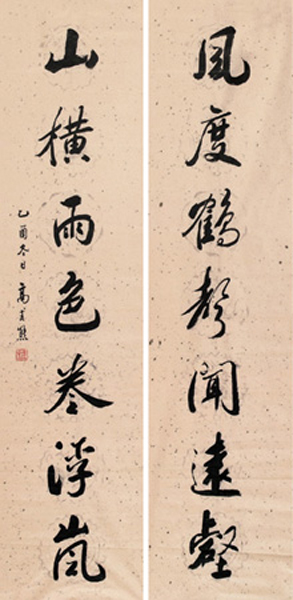 風度鶴聲聞遠壑
山橫雨色卷浮嵐
乙酉冬日 高式熊